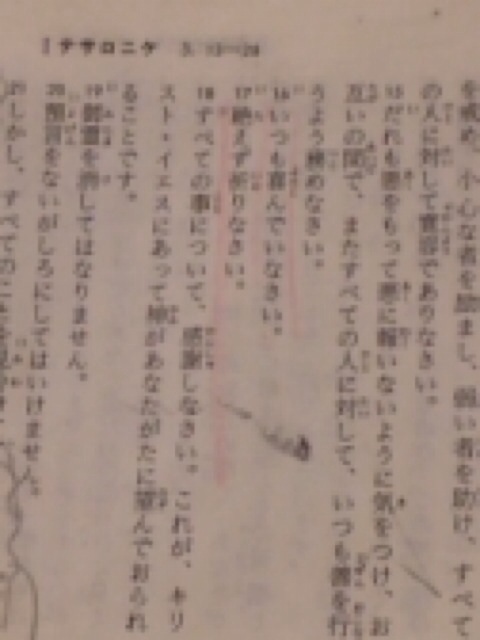 Iテサロニケ 5. 13—28
を戒め、小心な者を励まし、弱い者を助け、すべて
の人に対して寛容でありなさい。
15 だれも悪をもって悪に報いないように気をつけ、お
互いの間で、またすべての人に対して、いつも善を行
うよう務めなさい。
16 いつも喜んでいなさい。
17 絶えず祈りなさい。
18 すべての事について、感謝しなさい。これが、キリ
スト・イエスにあって神があなたがたに望んでおられ
ることです。
19 御霊を消してはなりません。
20 預言をないがしろにしてはいけません。
21 しかし、すべてのことを見分け